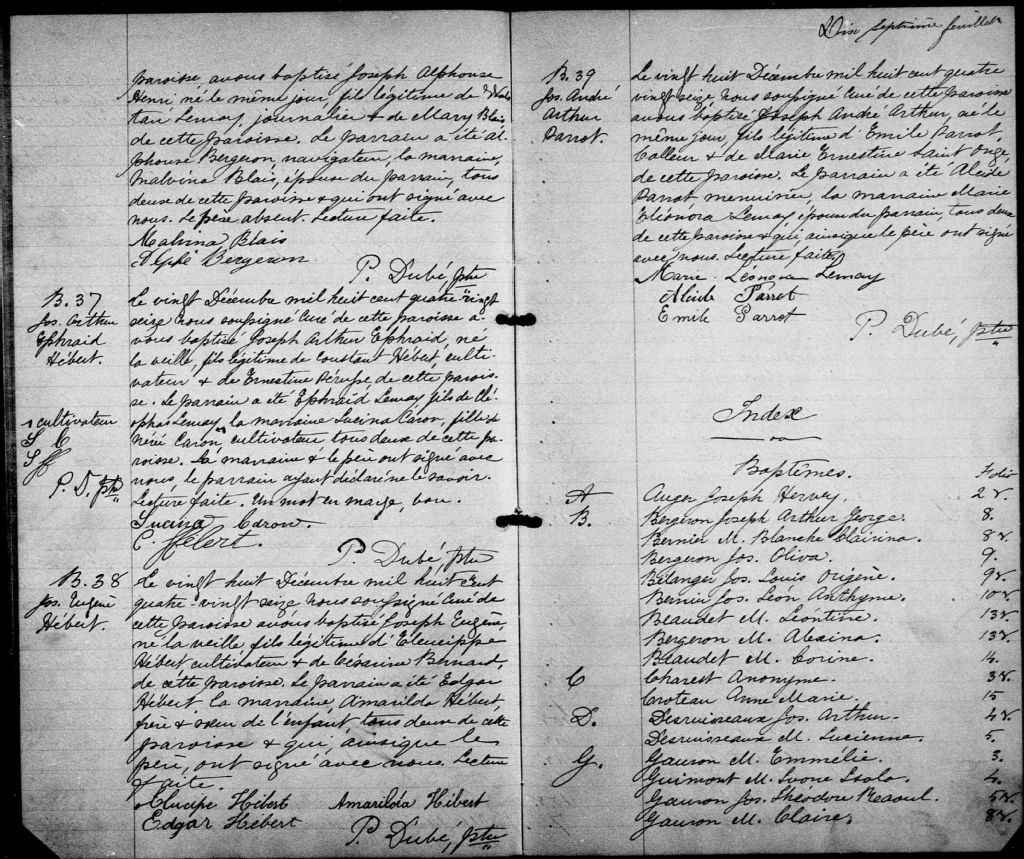 paroisse, avons baptisé Joseph Alphonse
Henri, né le même jour, fils légitime de
Lemay, journalier & de Mary Blais
de cette paroisse. Le parrain a été Al-
phonse Bergeron, navigateur, la marraine,
Malvina Blais, épouse du parrain, tous
deux de cette paroisse & qui ont signé avec
nous. Le père absent. Lecture faite.
Malvina Blais
Bergeron
P. Dubé, ptre
B. 37
Jos. Arthur
Ephraid
Hébert.
Le vingt Décembre mil huit cent quatre vingt
seize nous soussigné Curé de cette paroisse a-
vons baptisé Joseph Arthur Ephraid, né
la veille, fils légitime de Constant Hébert, culti-
vateur & de Ernestine de cette parois-
se. Le parrain a été Ephraïd Lemay fils de Clé-
ophas Lemay, la marraine Lucina Caron, fille de
Caron, cultivateur tous deux de cette pa-
roisse. La marraine & le père ont signé avec
nous, le parrain ayant déclaré ne le savoir.
Lecture faite. Un mot en marge, bon.
cultivateur
P. D. ptre
Lucina Caron.
C. Hébert.
P. Dubé, ptre
B. 38
Jos. Eugène
Hébert.
Le vingt huit Décembre mil huit cent
quatre-vingt seize nous soussigné Curé de
cette paroisse avons baptisé Joseph Eugène,
né la veille, fils légitime d'Eleucippe
Hébert cultivateur & de Césarine Bernard,
de cette paroisse. Le parrain a été Edgar
Hébert la marraine, Amarilda Hébert,
frère & sœur de l'enfant, tous deux de cette
paroisse & qui, ainsi que le
père, ont signé avec nous. Lecture
faite.
Hébert Amarilda Hébert
Edgar Hébert
P. Dubé, ptre
Dix septième feuillet
B. 39
Jos. André
Arthur
Parrot.
Le vingt huit Décembre mil huit cent quatre
vingt seize nous soussigné Curé de cette paroisse
avons baptisé Joseph André Arthur, né le
même jour, fils légitime d'Emile Parrot,
Colleur & de Marie Ernestine Saint Onge,
de cette paroisse. Le parrain a été Alcide
Parrot, menuisier, la marraine Marie
Eléonora Lemay, épouse du parrain, tous deux
de cette paroisse & qui ainsi que le père ont signé
avec nous. Lecture faite.
Marie Léonora Lemay
Alcide Parrot
Emile Parrot
P. Dubé, ptre
Index
Baptêmes. Folio
A Auger Joseph Hervey. 2 v.
B. Bergeron Joseph Arthur George. 8.
Bernier M. Blanche Clairina. 8 v.
Bergeron Jos. Oliva. 9.
Bélanger Jos. Louis Origène. 9 v.
Bernier Jos. Leon Anthyme. 10 v.
Beaudet M. Léontine. 13 v.
Bergeron M. Alexina. 13 v.
Beaudet M. Corine. 14.
C Charest Anonyme. 3 v.
Croteau Anne Marie. 15
D. Desruisseaux Jos. Arthur. 4 v.
Desruisseaux M. Lucienne. 5.
G. Gauron M. Emmélie. 3.
Guimont M. Ivone Isola. 4.
Gauron Jos. Théodore Raoul. 5 v.
Gauron M. Claire. 8 v.